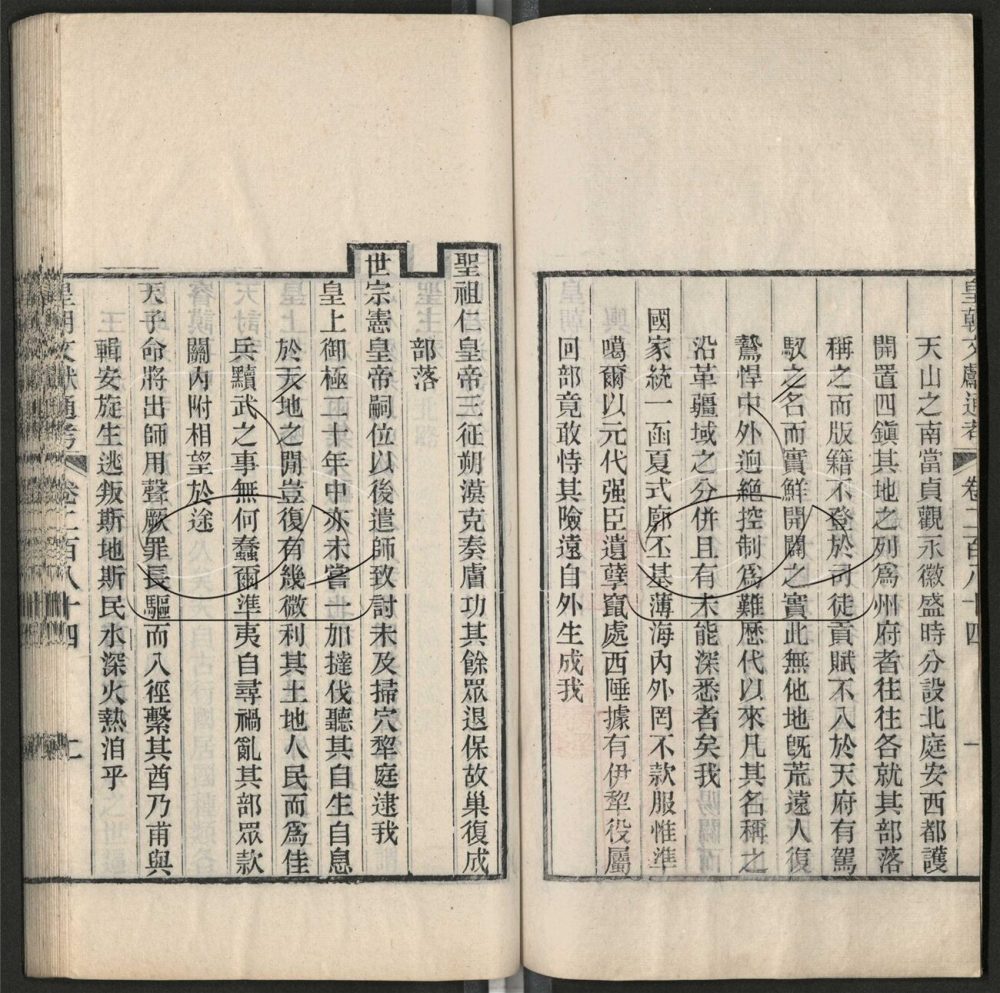 皇朝文獻通考 卷二百八十四 一
天山之南當貞觀永徽盛時分設北庭安西都護
開置四鎮其地之列爲州府者往往各就其部落
稱之而版籍不登於司徒貢賦不入於天府有駕
馭之名而實鮮開闢之實此無他地旣荒遠人復
鷙悍中外迥絕控制爲難歷代以來凡其名稱之
沿革疆域之分併且有未能深悉者矣我
國家統一函夏式廓丕基薄海內外罔不款服惟準
噶爾以元代强臣遺孽竄處西陲據有伊犂役屬
回部竟敢恃其險遠自外生成我
聖祖仁皇帝三征朔漠克奏膚功其餘眾退保故巢復成
部落
世宗憲皇帝嗣位以後遣師致討未及掃穴犂庭逮我
皇上御極二十年中亦未嘗一加撻伐聽其自生自息
於天地之閒豈復有幾微利其土地人民而爲佳
兵黷武之事無何蠢爾準夷自尋禍亂其部眾款
關內附相望於途
天子命將出師用聲厥罪長驅而入徑繫其酋乃甫與
輯安旋生逃叛斯地斯民水深火熱洎乎
皇朝文獻通考 卷二百八十四